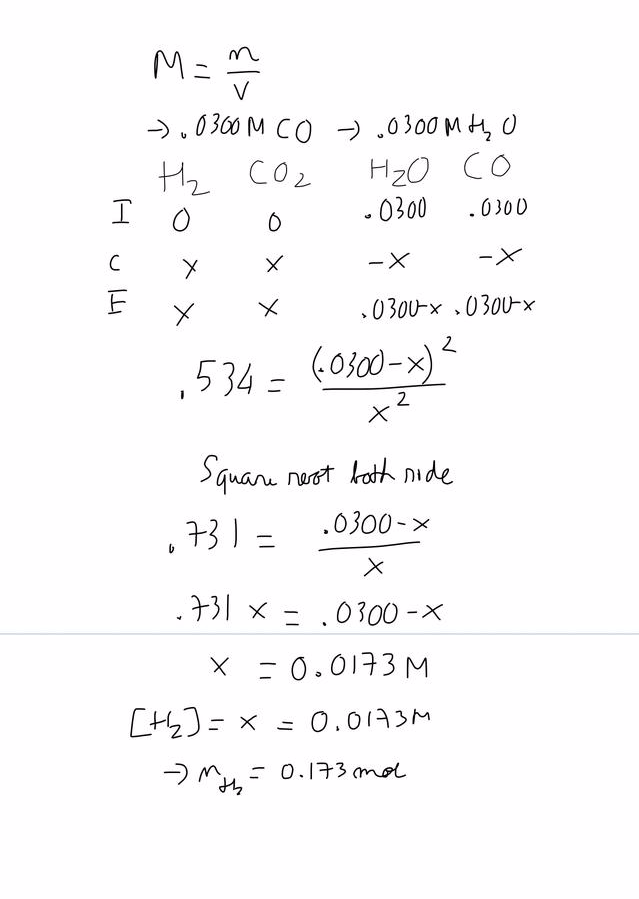 M = n/V
→ .0300 M CO → .0300 M H₂O
H₂ CO₂ H₂O CO
I 0 0 .0300 .0300
C x x -x -x
E x x .0300-x .0300-x
.534 = (.0300-x)²/x²
Square root both side
.731 = .0300-x/x
.731 x = .0300-x
x = 0.0173 M
[H₂] = x = 0.0173 M
→ n_H₂ = 0.173 mol